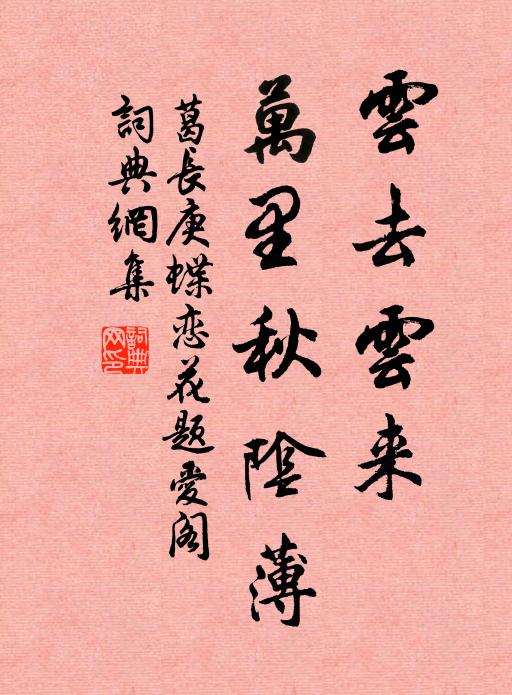 雲去雲来
萬里秋陰薄
葛長庚蝶恋花题愛阁
詞典網集
詞典网印